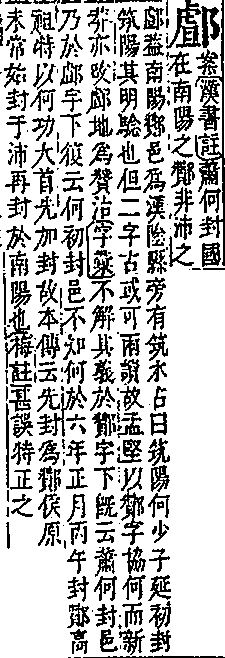 䣜
案漢書註蕭何封國
在南陽之酇非沛之
䣜蓋南陽酇邑爲漢陰縣旁有筑水古曰筑陽何少子延初封
筑陽其明驗也但二字古或可兩讀故孟堅以酇字協何而新
莽亦改䣜地爲贊治字彙不解其義於酇字下旣云蕭何封邑
乃於䣜字下復云何初封邑不知何於六年正月丙午封酇高
祖特以何功大首先加封故本傳云先封爲酇侯原
未常始封于沛再封於南陽也梅註甚誤特正之